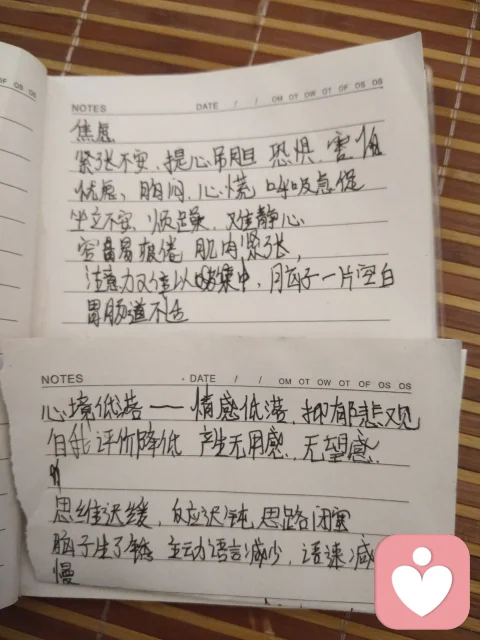 OF OS OS
NOTES DATE / / OM OT OW OT OF OS OS
焦虑
紧张不安、提心吊胆 恐惧 害怕
忧虑、胸闷、心慌 呼吸急促
坐立不安、烦躁、难静心
容易疲倦 肌肉紧张,
注意力难以集中,脑子一片空白
胃肠道不适
NOTES DATE / / OM OT OW OT OF OS OS
心境低落 —— 情感低落,抑郁悲观
自我评价降低 产生无用感、无望感.
思维迟缓,反应迟钝,思路闭塞
脑子生了锈 主动语言减少,语速减
慢